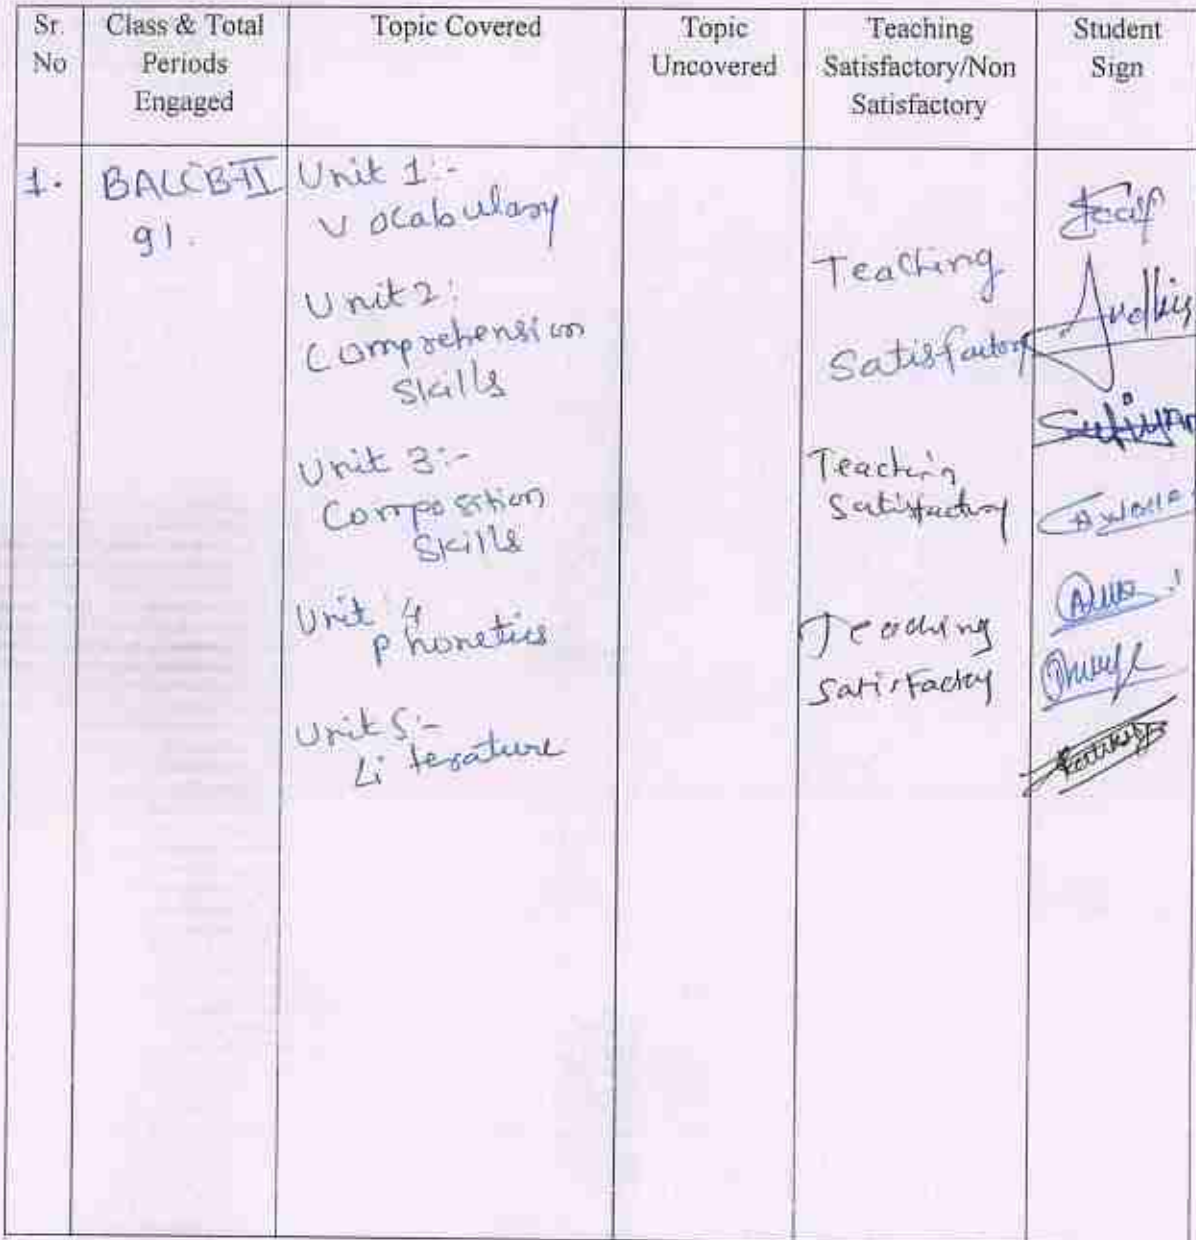 Sr. No
Class & Total Periods Engaged
Topic Covered
Topic Uncovered
Teaching Satisfactory/Non Satisfactory
Student Sign
1.
BALLB-II
91.
Unit 1:-
Vocabulary
Unit 2:
Comprehension
Skills
Unit 3:-
Composition
Skills
Unit 4
Phonetics
Unit 5:-
Literature
Teaching
Satisfactory
Teaching
Satisfactory
Teaching
Satisfactory
Sufiyan